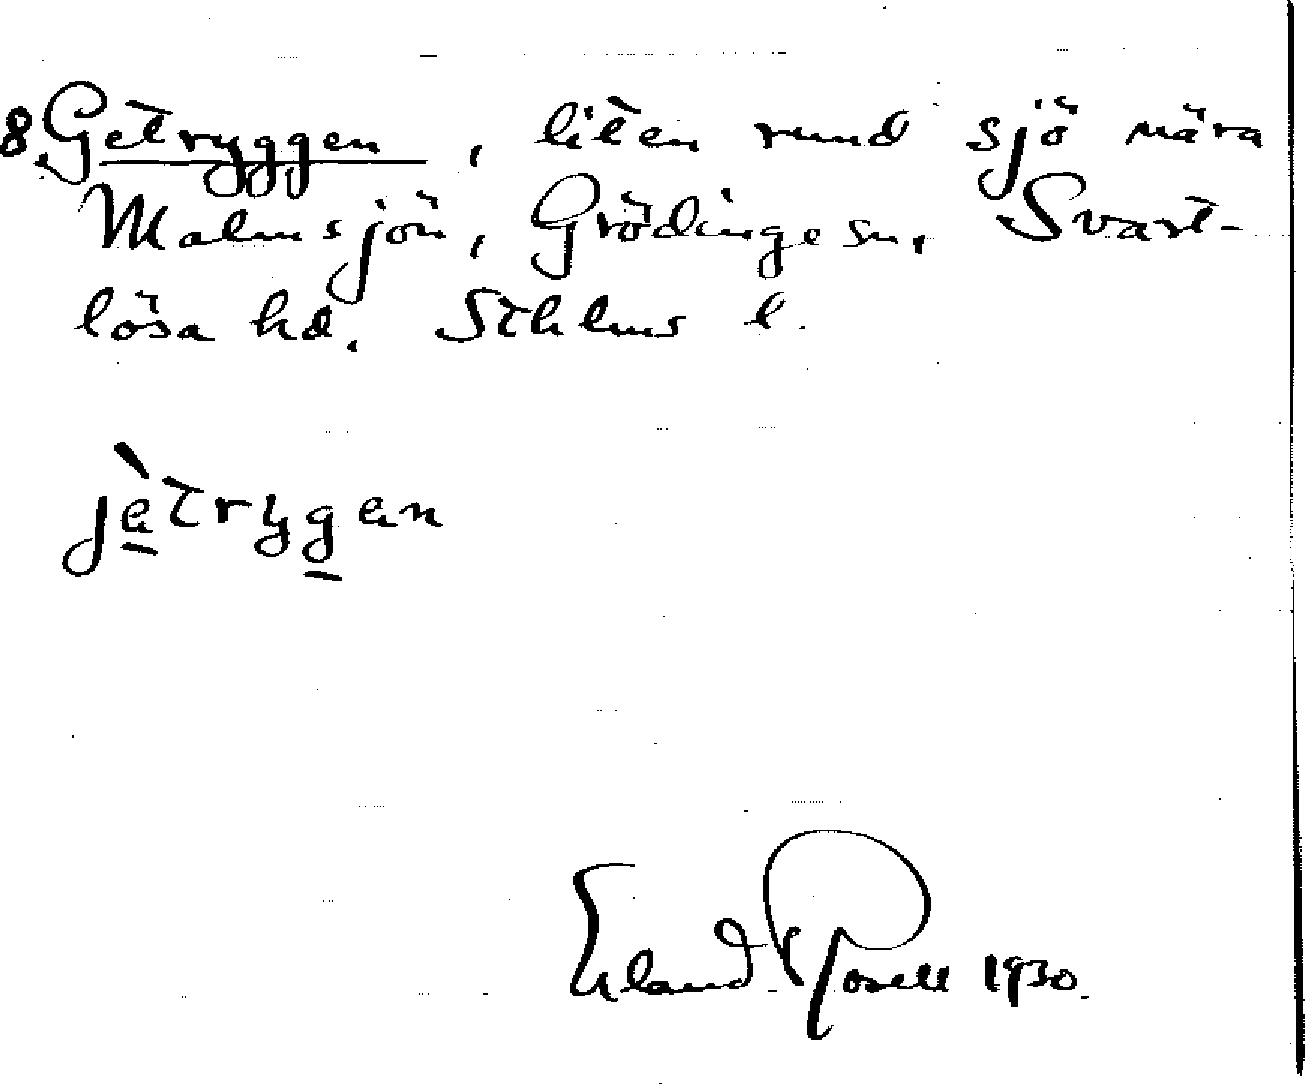 8. Getryggen, liten rund sjö nära
Malmsjön, Grödinge sn, Svart-
lösa hd. Sthlms l.
jètrygen
Erland Rosell 1930.